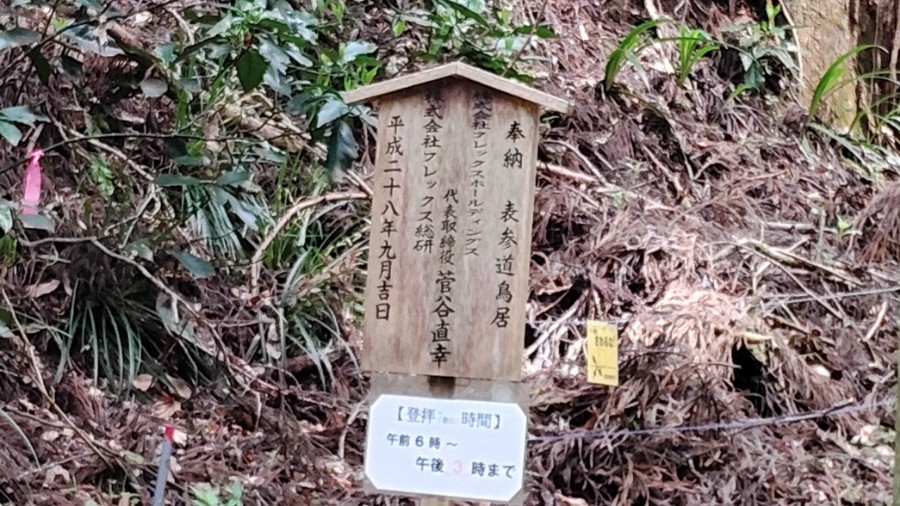 奉納 表参道鳥居
株式会社フレックスホールディングス
代表取締役 菅谷直幸
株式会社フレックス総研
平成二十八年九月吉日
【登拝 時間】
午前6時～
午後3時まで
さわるな